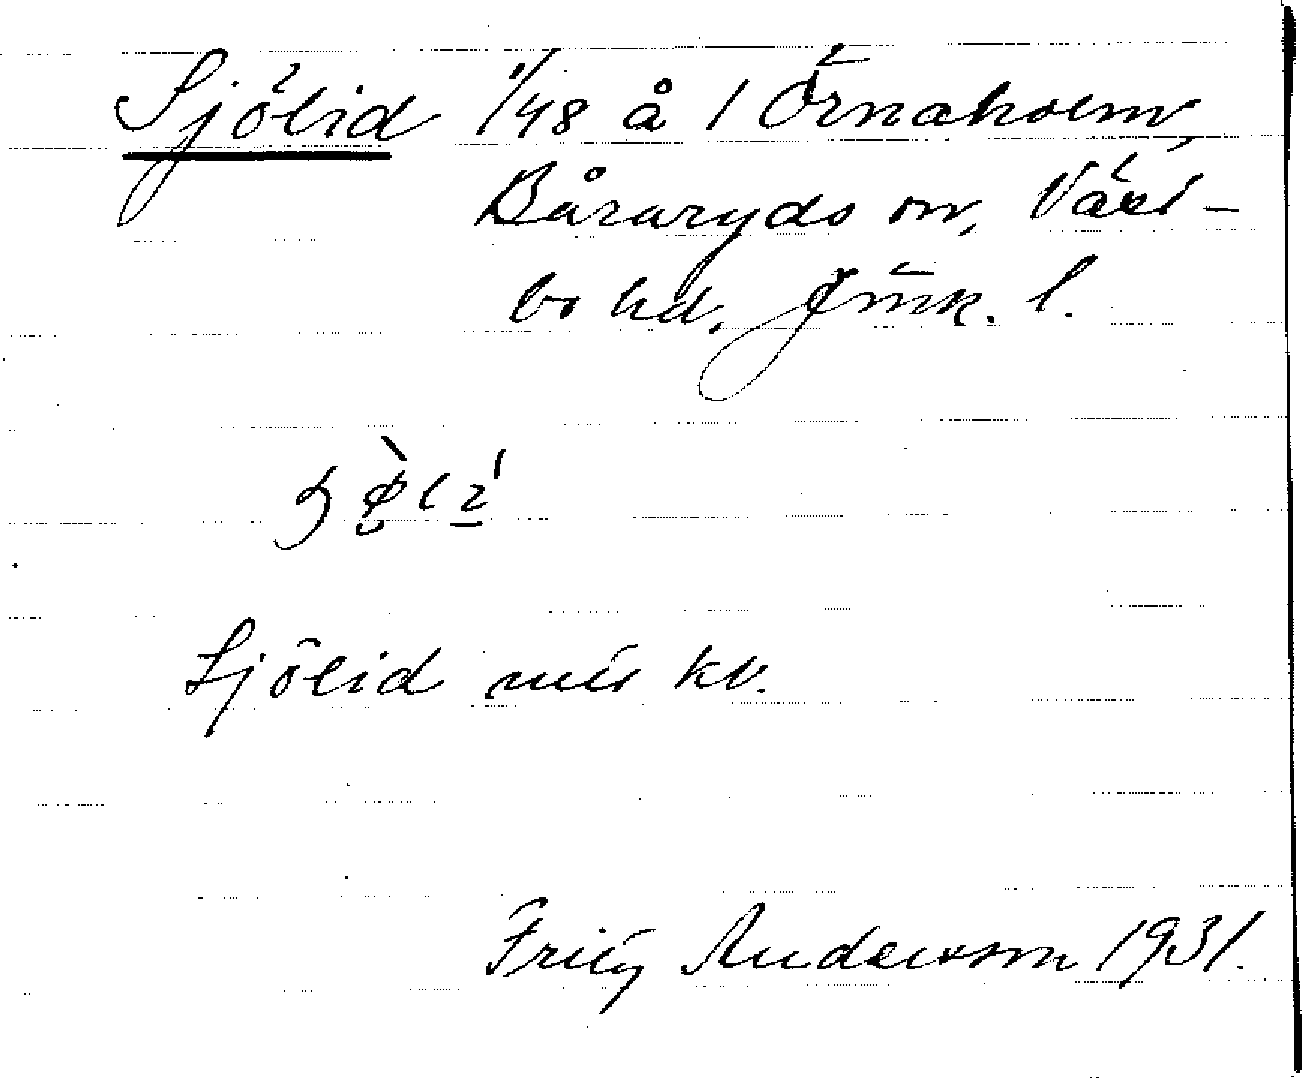 Sjölid 1/48 å 1 Örnaholm,
Båraryds sn, Väst-
bo hd, Jönk. l.
Sjölid mts kv.
Fritz Andersson 1931.